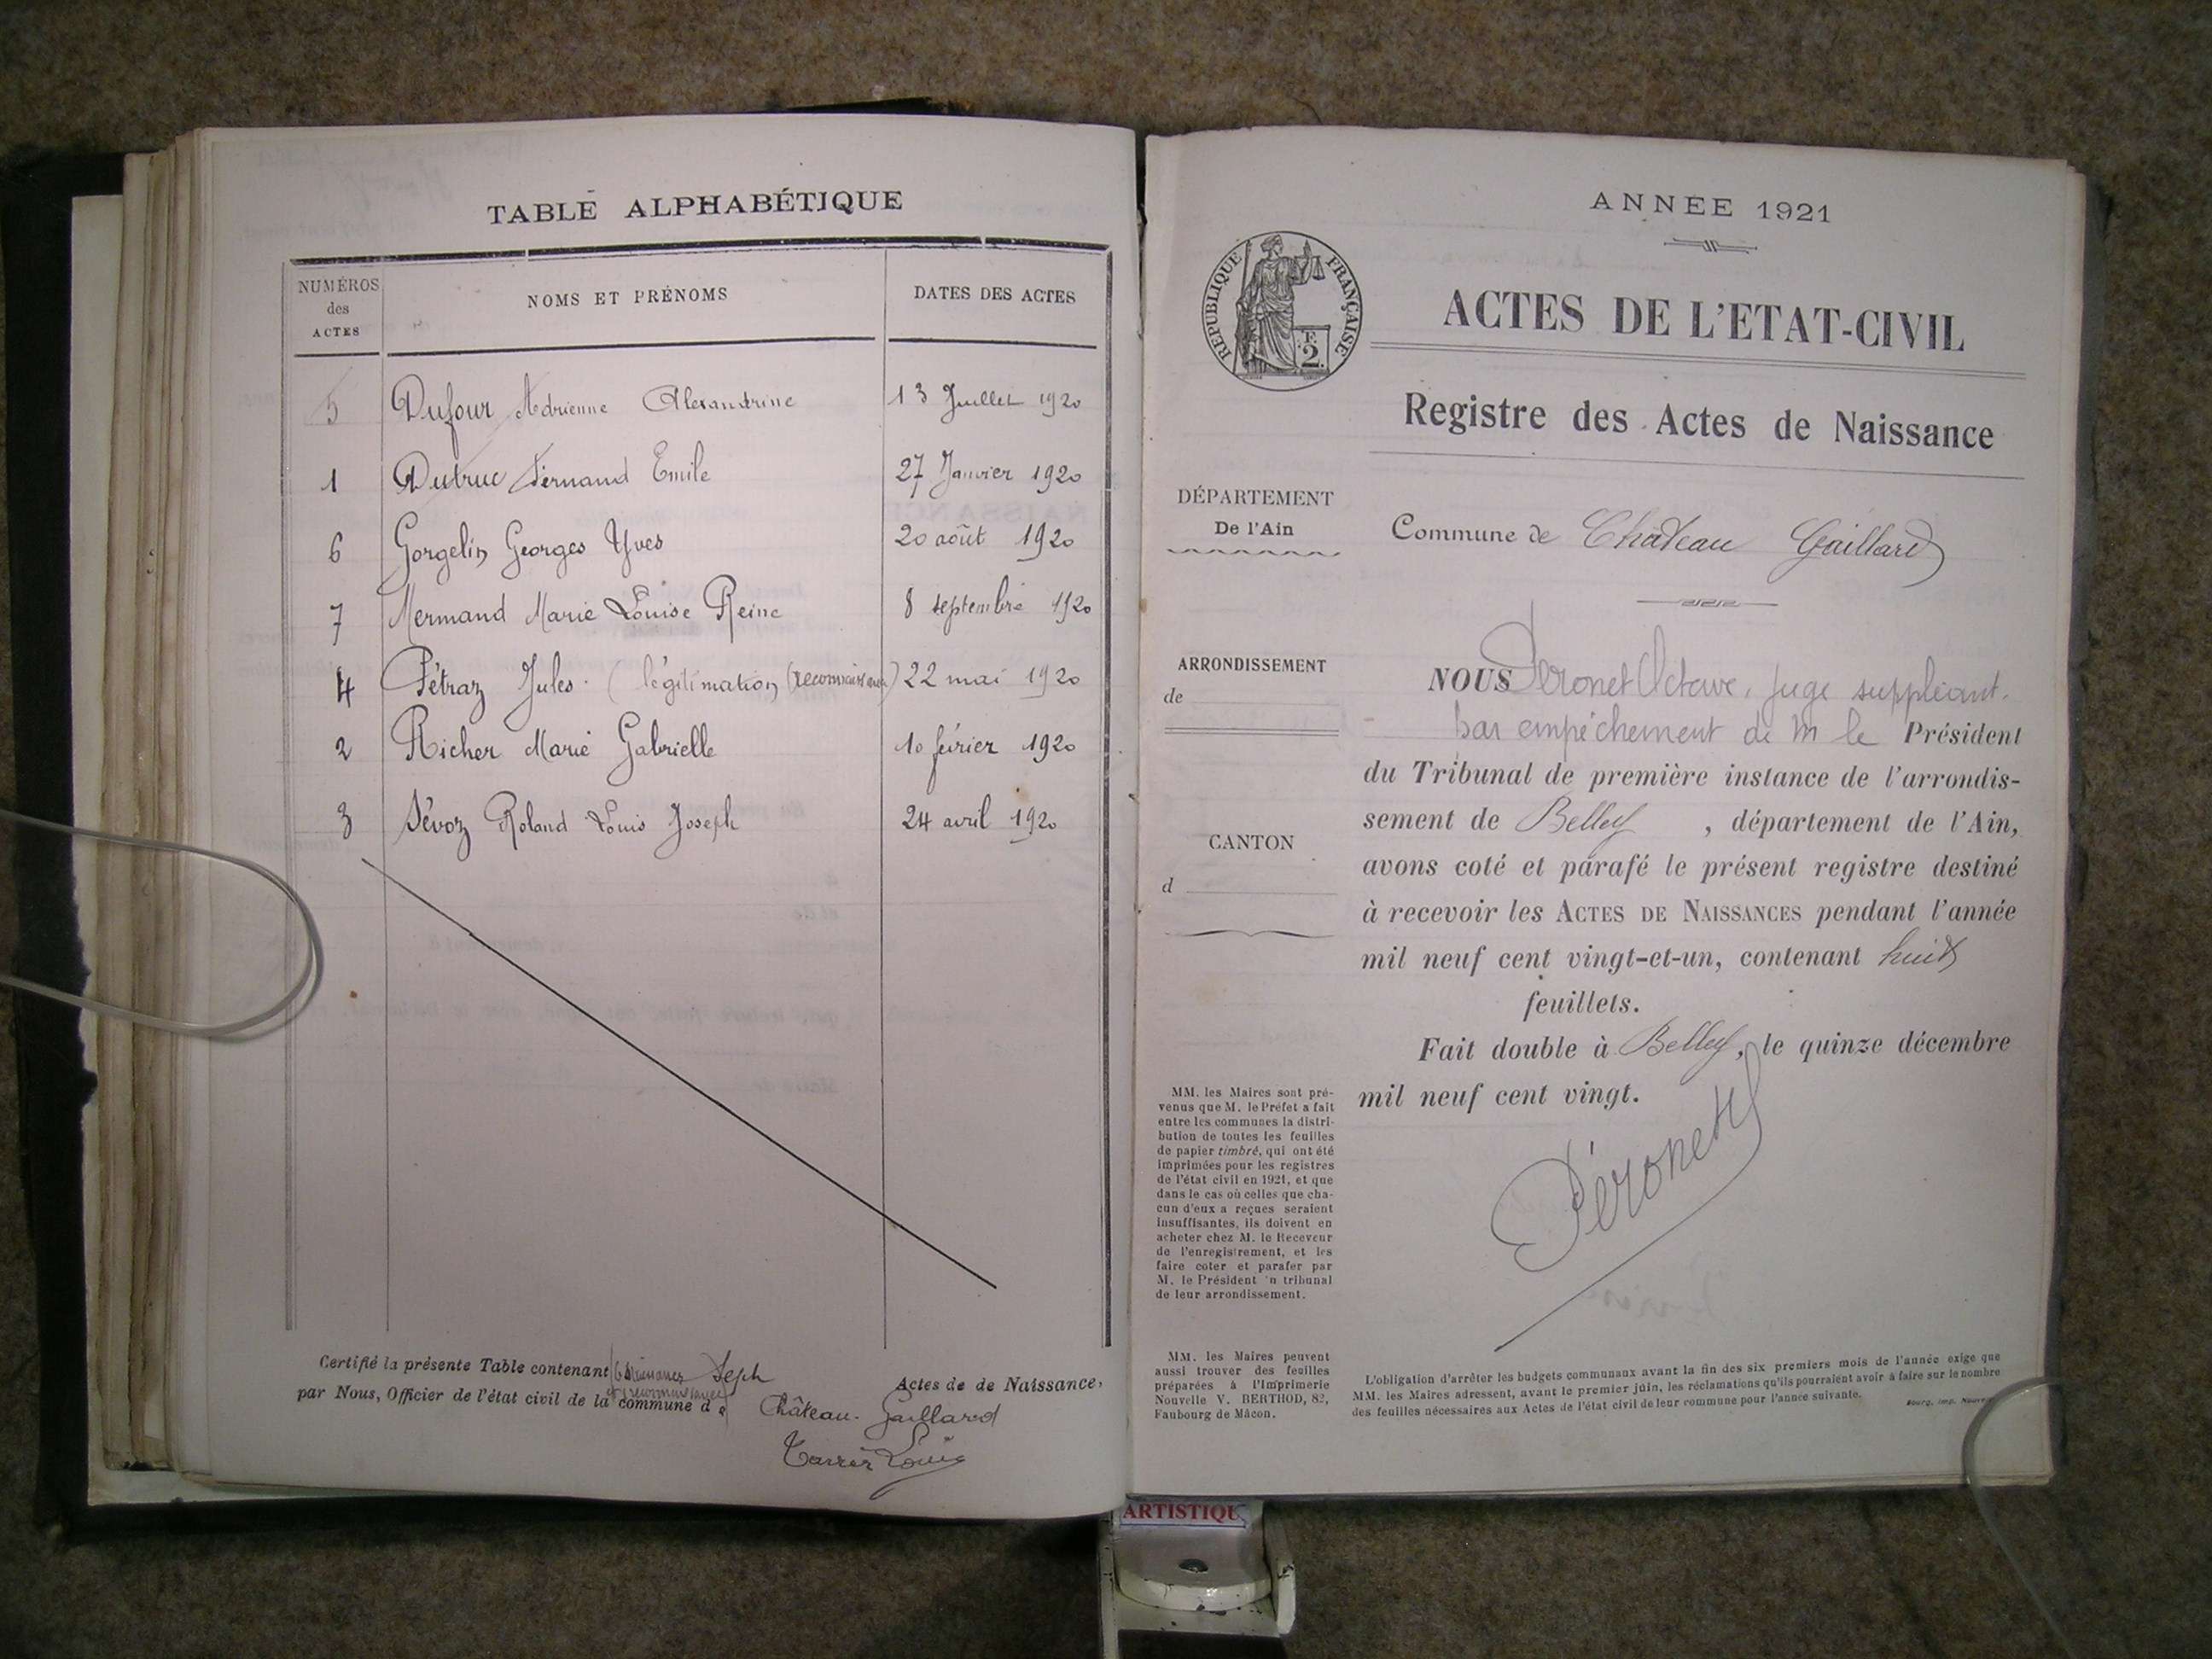 TABLE ALPHABÉTIQUE
NUMÉROS des ACTES
NOMS ET PRÉNOMS
DATES DES ACTES
5 Dufour Adrienne Alexandrine 13 Juillet 1920
1 Dutruc Fernand Emile 27 Janvier 1920
6 Gorgelin Georges Yves 20 août 1920
7 Mermand Marie Louise Reine 8 septembre 1920
4 Pétraz Jules (légitimation (reconnaissance) 22 mai 1920
2 Richer Marie Gabrielle 10 février 1920
3 Sévoz Roland Louis Joseph 24 avril 1920
Certifié la présente Table contenant Sept Actes de de Naissance,
par Nous, Officier de l'état civil de la commune d Château-Gaillard
Louis
ANNÉE 1921
RÉPUBLIQUE FRANÇAISE
2 F.
ACTES DE L'ETAT-CIVIL
Registre des Actes de Naissance
DÉPARTEMENT
De l'Ain
Commune de Château Gaillard
ARRONDISSEMENT
de
CANTON
d
NOUS Péronet Octave, juge suppléant.
par empêchement de M le Président
du Tribunal de première instance de l'arrondis-
sement de Belley, département de l'Ain,
avons coté et parafé le présent registre destiné
à recevoir les ACTES DE NAISSANCES pendant l'année
mil neuf cent vingt-et-un, contenant huit
feuillets.
Fait double à Belley, le quinze décembre
mil neuf cent vingt.
Péronet
MM. les Maires sont pré-
venus que M. le Préfet a fait
entre les communes la distri-
bution de toutes les feuilles
de papier timbré, qui ont été
imprimées pour les registres
de l'état civil en 1921, et que
dans le cas où celles que cha-
cun d'eux a reçues seraient
insuffisantes, ils doivent en
acheter chez M. le Receveur
de l'enregistrement, et les
faire coter et parafer par
M. le Président 'n tribunal
de leur arrondissement.
MM. les Maires peuvent
aussi trouver des feuilles
préparées à l'Imprimerie
Nouvelle V. BERTHOD, 82,
Faubourg de Mâcon.
L'obligation d'arrêter les budgets communaux avant la fin des six premiers mois de l'année exige que
MM. les Maires adressent, avant le premier juin, les réclamations qu'ils pourraient avoir à faire sur le nombre
des feuilles nécessaires aux Actes de l'état civil de leur commune pour l'année suivante.
Bourg, Imp. Nouve
ARTISTIQU